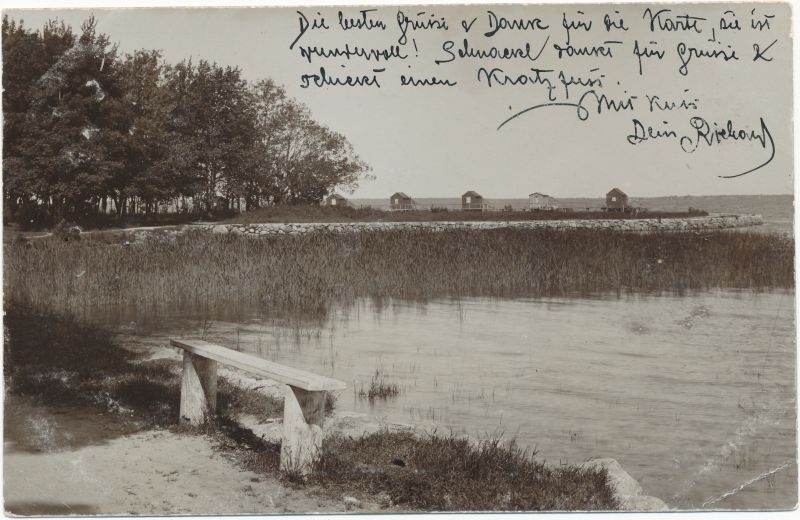 Die besten Grüsse & Dank für die Karte, sie ist
wundervoll! Schnackel dankt für Grüsse &
schickt einen Kratzfuss.
Mit Kuss
Dein Richard